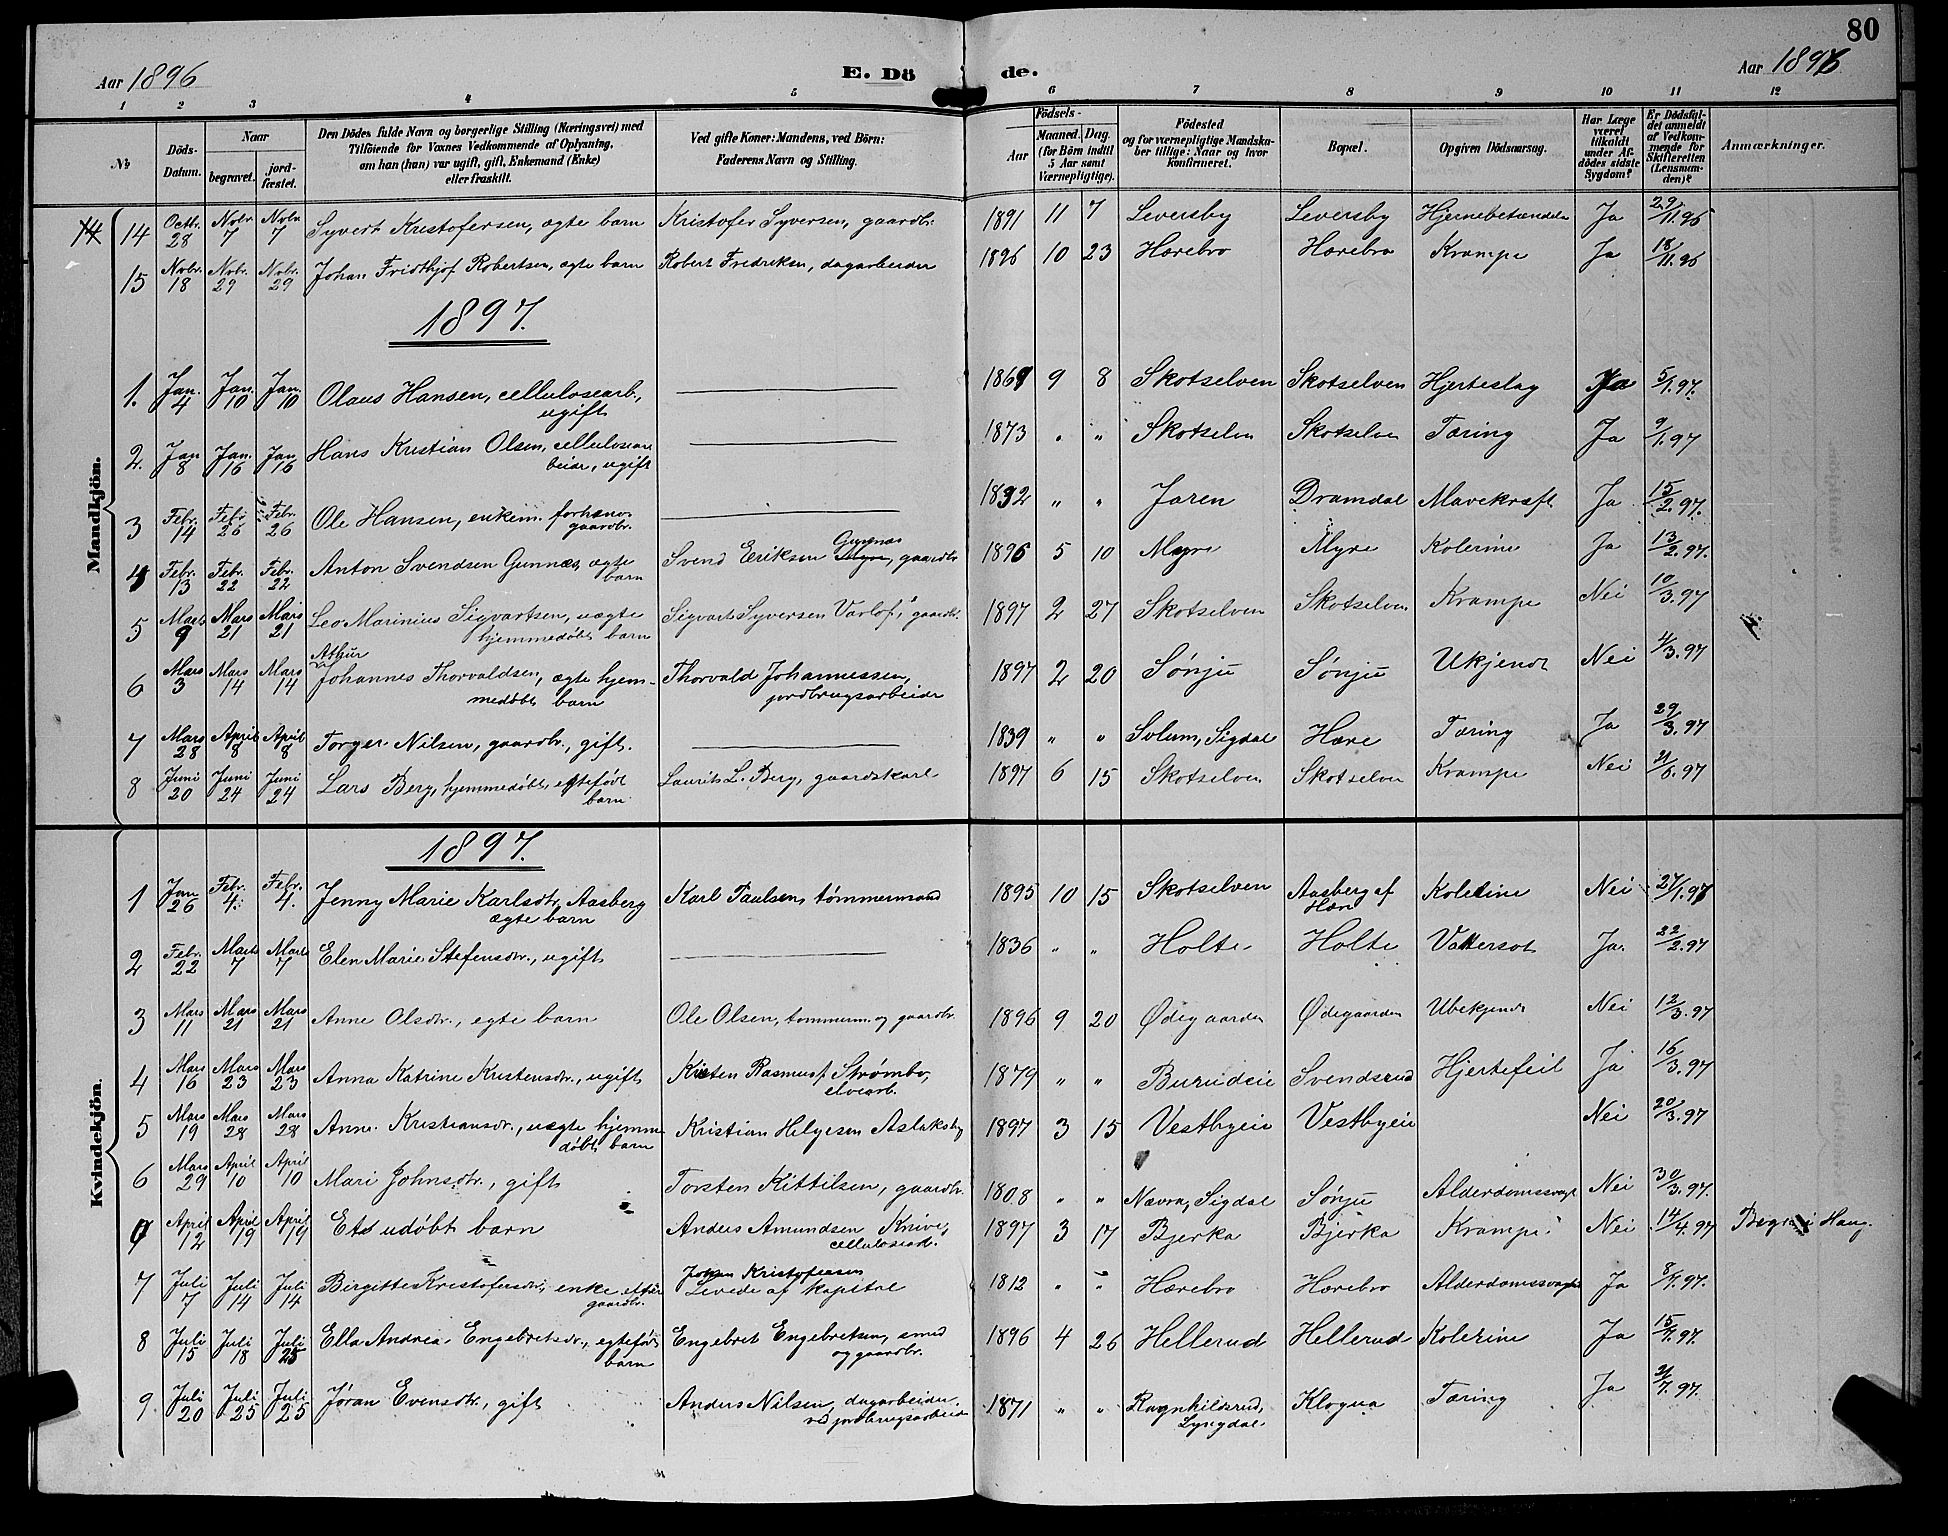 80
Aar 1896 E. Dö de. Aar 1896
1 2 3 4 5 6 7 8 9 10 11 12
No Döds-Datum. Naar begravet. jordfæstet. Den Dödes fulde Navn og borgerlige Stilling (Næringsvei) med Tilföiende for Voxnes Vedkommende af Oplysning, om han (hun) var ugift, gift, Enkemand (Enke) eller fraskilt. Ved gifte Koner: Mandens, ved Börn: Faderens Navn og Stilling. Födsels- Aar Maaned. Dag. (for Börn indtil 5 Aar samt Værnepligtige). Födested og for værnepligtige Mandskaber tillige: Naar og hvor konfirmeret. Bopæl. Opgiven Dödsaarsag. Har Læge været tilkaldt under Afdödes sidste Sygdom? Er Dödsfaldet anmeldt af Vedkommende for Skifteretten (Lensmanden)? Anmærkninger.
Mandkjön.
14 14 Octbr. 28 Novbr 7 Novbr 7 Syvert Kristofersen, ægte barn Kristofer Syversen, gaardbr. 1891 11 7 Leversby Leversby Hjernebetændelse Ja 29/11.96
15 Novbr. 18 Novbr. 29 Novbr. 29 Johan Fridthjof Robertsen, ægte barn Robert Fredriksen, dagarbeider 1896 10 23 Hærebro Hærebro Krampe Ja 18/11.96
1897.
1. Jan. 4 Jan. 10 Jan. 10 Olaus Hansen, cellulosearb., ugift 1869 9 8 Skotselven Skotselven Hjerteslag Ja 5/1.97.
2. Jan 8 Jan. 16 Jan 16 Hans Kristian Olsen, cellulosearbeider, ugift 1873 " " Skotselven Skotselven Tæring Ja 9/1.97
3 Febr. 14 Febr. 26 Febr. 26 Ole Hansen, enkem. forhenv. gaardbr. 1832 " " Jaren Dramdal Mavekræft Ja 15/2.97.
4 Febr. 13 Febr. 22 Febr. 22 Anton Svendsen Gunnæs, ægte barn Svend Eriksen Gunnæs, gaardbr. 1896 5 10 Myre Myre Kolerine Ja 13/2.97.
5 Mars 9 Mars 21 Mars 21 Leo Marinius Sigvartsen, uægte hjemmedøbt barn Sigvart Syversen Varlo, gaardbr. 1897 2 27 Skotselven Skotselven Krampe Nei 10/3.97
6 Mars 3 Mars 14 Mars 14 Athur Johannes Thorvaldsen, ægte hjemmedøbt barn Thorvald Johannessen, jordbrugsarbeider 1897 2 20 Sønju Sønju Ukjendt Nei 4/3.97
7 Mars 28 April 8 April 8 Torger Nilsen, gaardbr., gift. 1839 " " Solum, Sigdal Hære Tæring Ja 29/3.97
8 Juni 20 Juni 24 Juni 24 Lars Berg, hjemmedøbt, egtefødt barn Laurits L. Berg, gaardskarl 1897 6 15 Skotselven Skotselven Krampe Nei 21/6.97
Kvindekjön.
1897.
1 Jan 26 Febr. 4. Febr. 4. Jenny Marie Karlsdtr. Aasberg ægte barn Karl Paulsen, tømmermand 1895 10 15 Skotselven Aasberg af Hære Kolerine Nei 27/1.97
2 Febr. 22 Marts 7 Marts 7 Elen Marie Stefensdtr., ugift 1836 " " Holte Holte Vattersot Ja. 22/2.97
3 Mars 11 Mars 21 Mars 21 Anne Olsdtr., egte barn Ole Olsen, tømmerm. og gaardbr. 1896 9 20 Ødegaarden Ødegaarden Ubekjendt Nei 12/3.97
4 Mars 16 Mars 23 Mars 23 Anna Katrine Kristensdtr., ugift Kristen Rasmus. Strømbo, elvearb. 1879 " " Burudeie Svendsrud Hjertefeil Ja 16/3.97
5 Mars 19 Mars 28 Mars 28 Anne Kristiansdtr., uægte hjemmedøbt barn Kristian Helgesen Aslaksby 1897 3 15 Vestbyeie Vestbyeie Nei 20/3.97
6 Mars 29 April 10 April 10 Mari Johnsdtr., gift Torsten Kittilsen, gaardbr. 1808 " " Nævra, Sigdal Sønju Alderdomssvaghed Nei 30/3.97.
0 April 12 April 19 April 19 Et udøbt barn Anders Amundsen Knive, cellulosearb. 1897 3 17 Bjerka Bjerka Krampe Nei 14/4.97 Begr. i Haug.
7 Juli 7 Juli 14 Juli 14 Birgitte Kristofersdtr., enke efter gaardbr. Johan Kristofersen Levede af kapital 1812 " " Hærebro Hærebro Alderdomssvaghed Ja 8/7.97.
8 Juli 15 Juli 18 Juli 25 Ella Andrea Engebretsdr., egtefødt barn Engebret Engebretsen, smed og gaardbr. 1896 4 26 Hellerud Hellerud Kolerine Ja 15/7.97.
9 Juli 20 Juli 25 Juli 25 Jøran Evensdtr., gift Anders Nilsen, dagarbeider ved jordbrugsarbeide 1871 " " Ragnhildsrud, Lyngdal Klogna Tæring Ja 21/7.97.